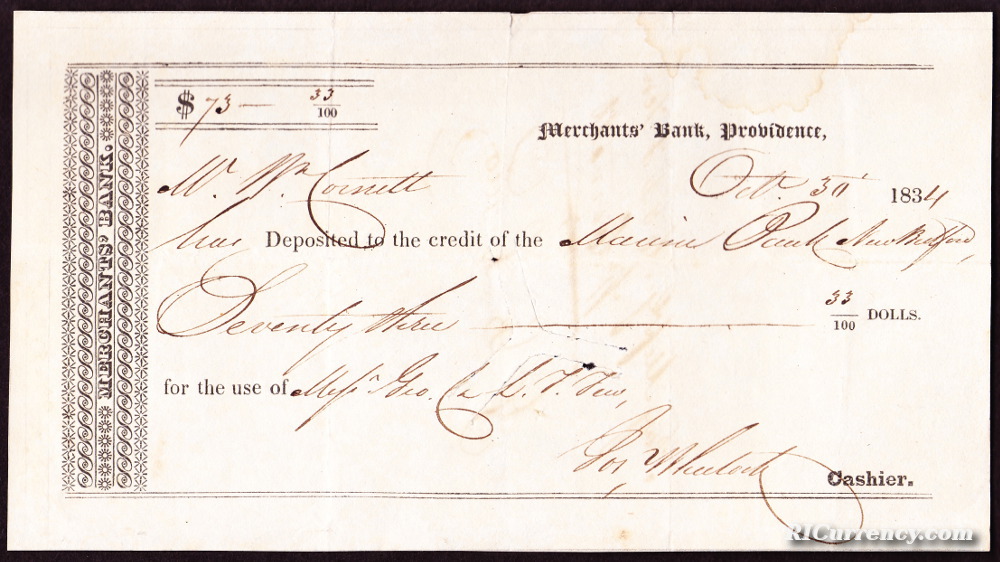 MERCHANTS' BANK.
$ 73 — 33/100
Merchants' Bank, Providence,
Mr. Wm. Cornett Octr. 30 1834
has Deposited to the credit of the Marine Bank New Bedford,
Seventy three 33/100 DOLLS.
for the use of Messrs. Geo. & T.
Jos. Wheelock
Cashier.
RICurrency.com